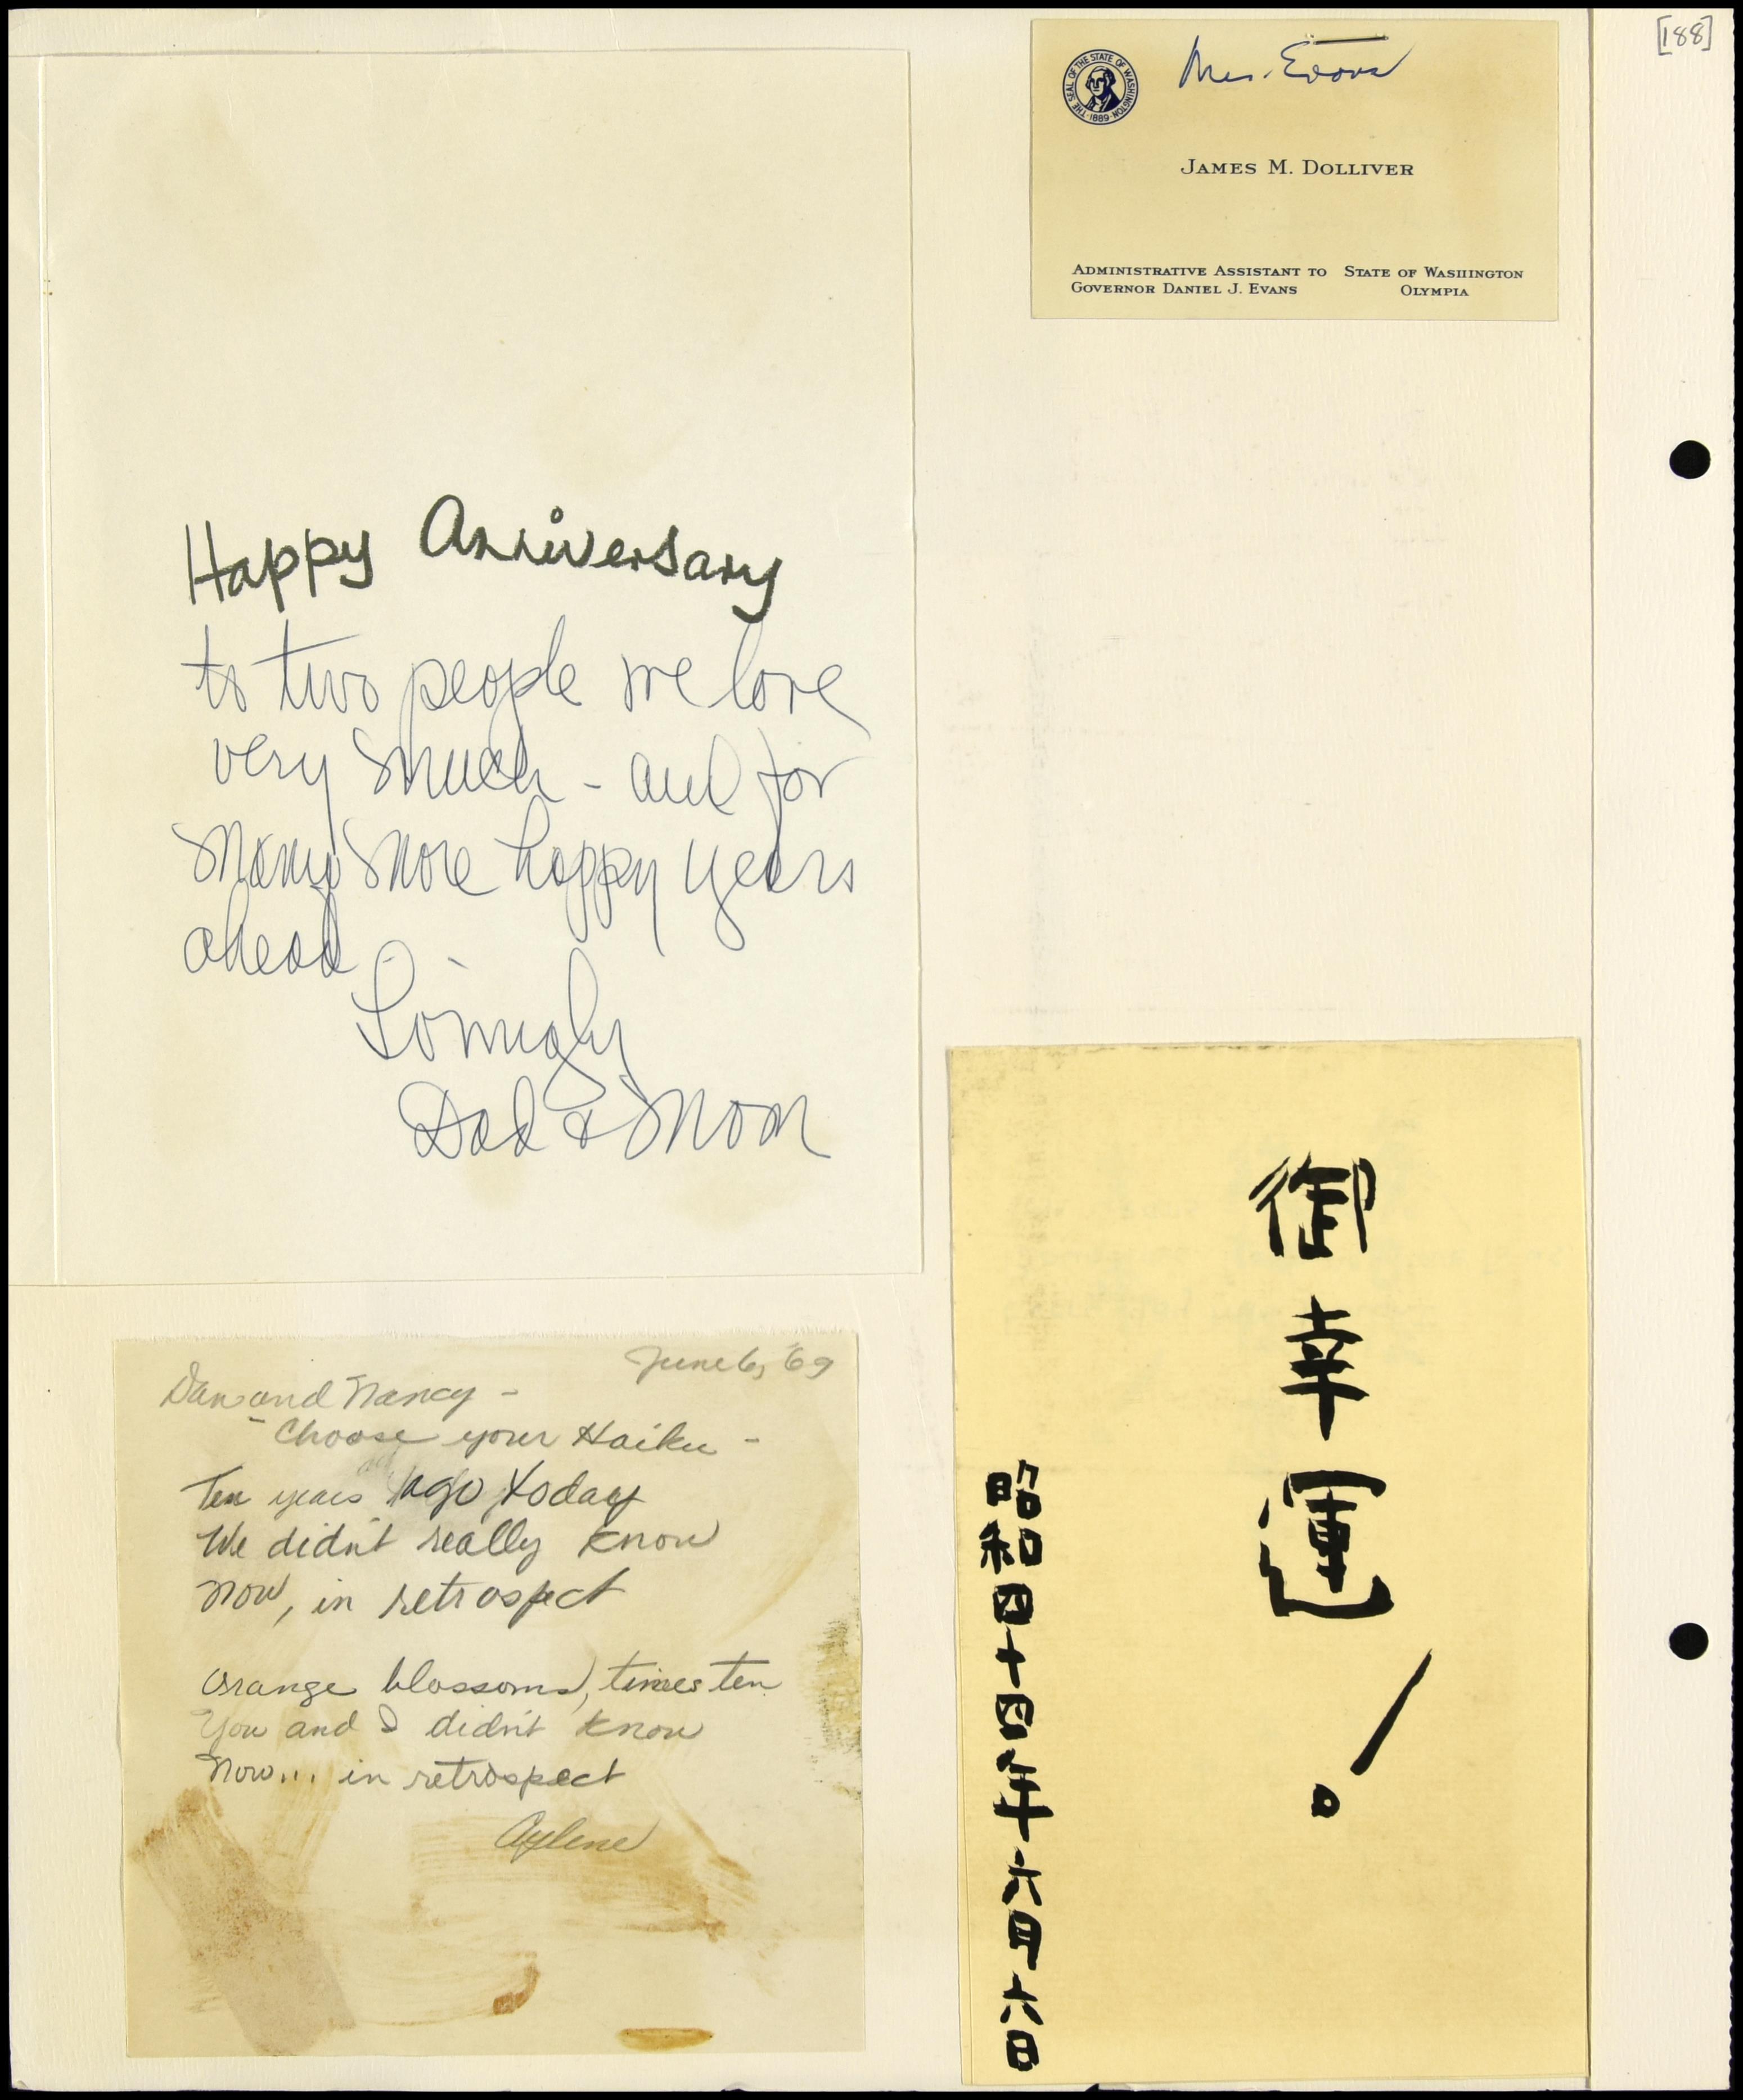 [188]
Mrs. Evans
THE SEAL OF THE STATE OF WASHINGTON
1889
JAMES M. DOLLIVER
ADMINISTRATIVE ASSISTANT TO
GOVERNOR DANIEL J. EVANS
STATE OF WASHINGTON
OLYMPIA
Happy Anniversary
to two people we love
very much - and for
many more happy years
ahead - -
Lovingly
Dad & Mom
June 6, '69
Dan and Nancy -
- Choose your Haiku -
Ten years ago today
We didn't really know
Now, in retrospect
Orange blossoms, times ten
You and I didn't know
Now... in retrospect
Aylene
御幸運!
昭和四十四年六月六日